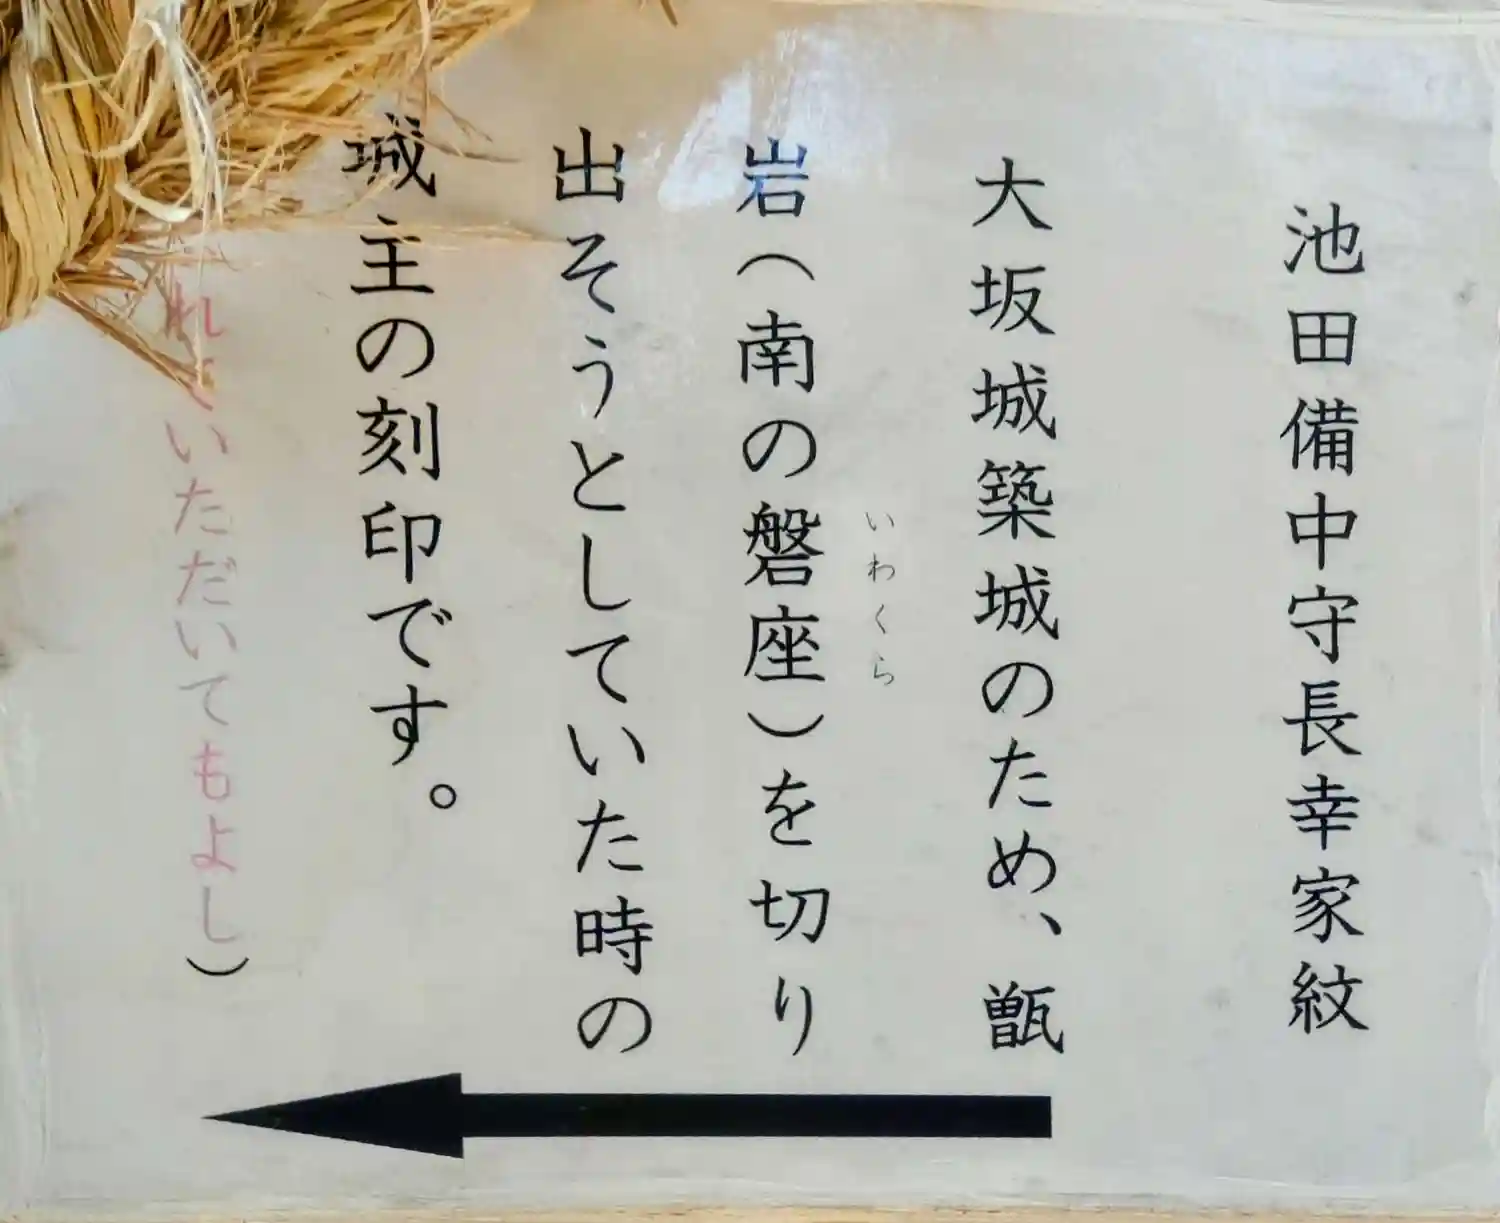 池田備中守長幸家紋
大坂城築城のため、甑
岩（南の磐座）を切り
いわくら
出そうとしていた時の
城主の刻印です。
れていただいてもよし）